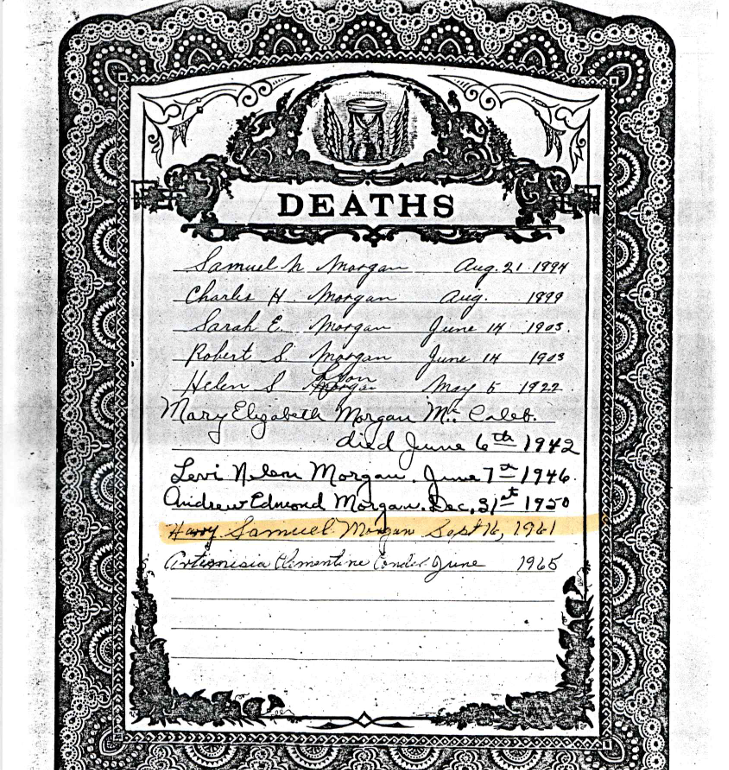 DEATHS
Samuel N Morgan Aug. 21 1894
Charles H Morgan Aug. 1899
Sarah E. Morgan June 14 1903.
Robert S. Morgan June 14 1903
Helen S Morgan May 5 1922.
Mary Elizabeth Morgan Mc Caleb.
died June 6th 1942
Levi Nelson Morgan. June 7th 1946.
Andrew Edmond Morgan. Dec. 31st 1950
Harry Samuel Morgan Sept 16, 1961
Artimisia Clementine June 1965